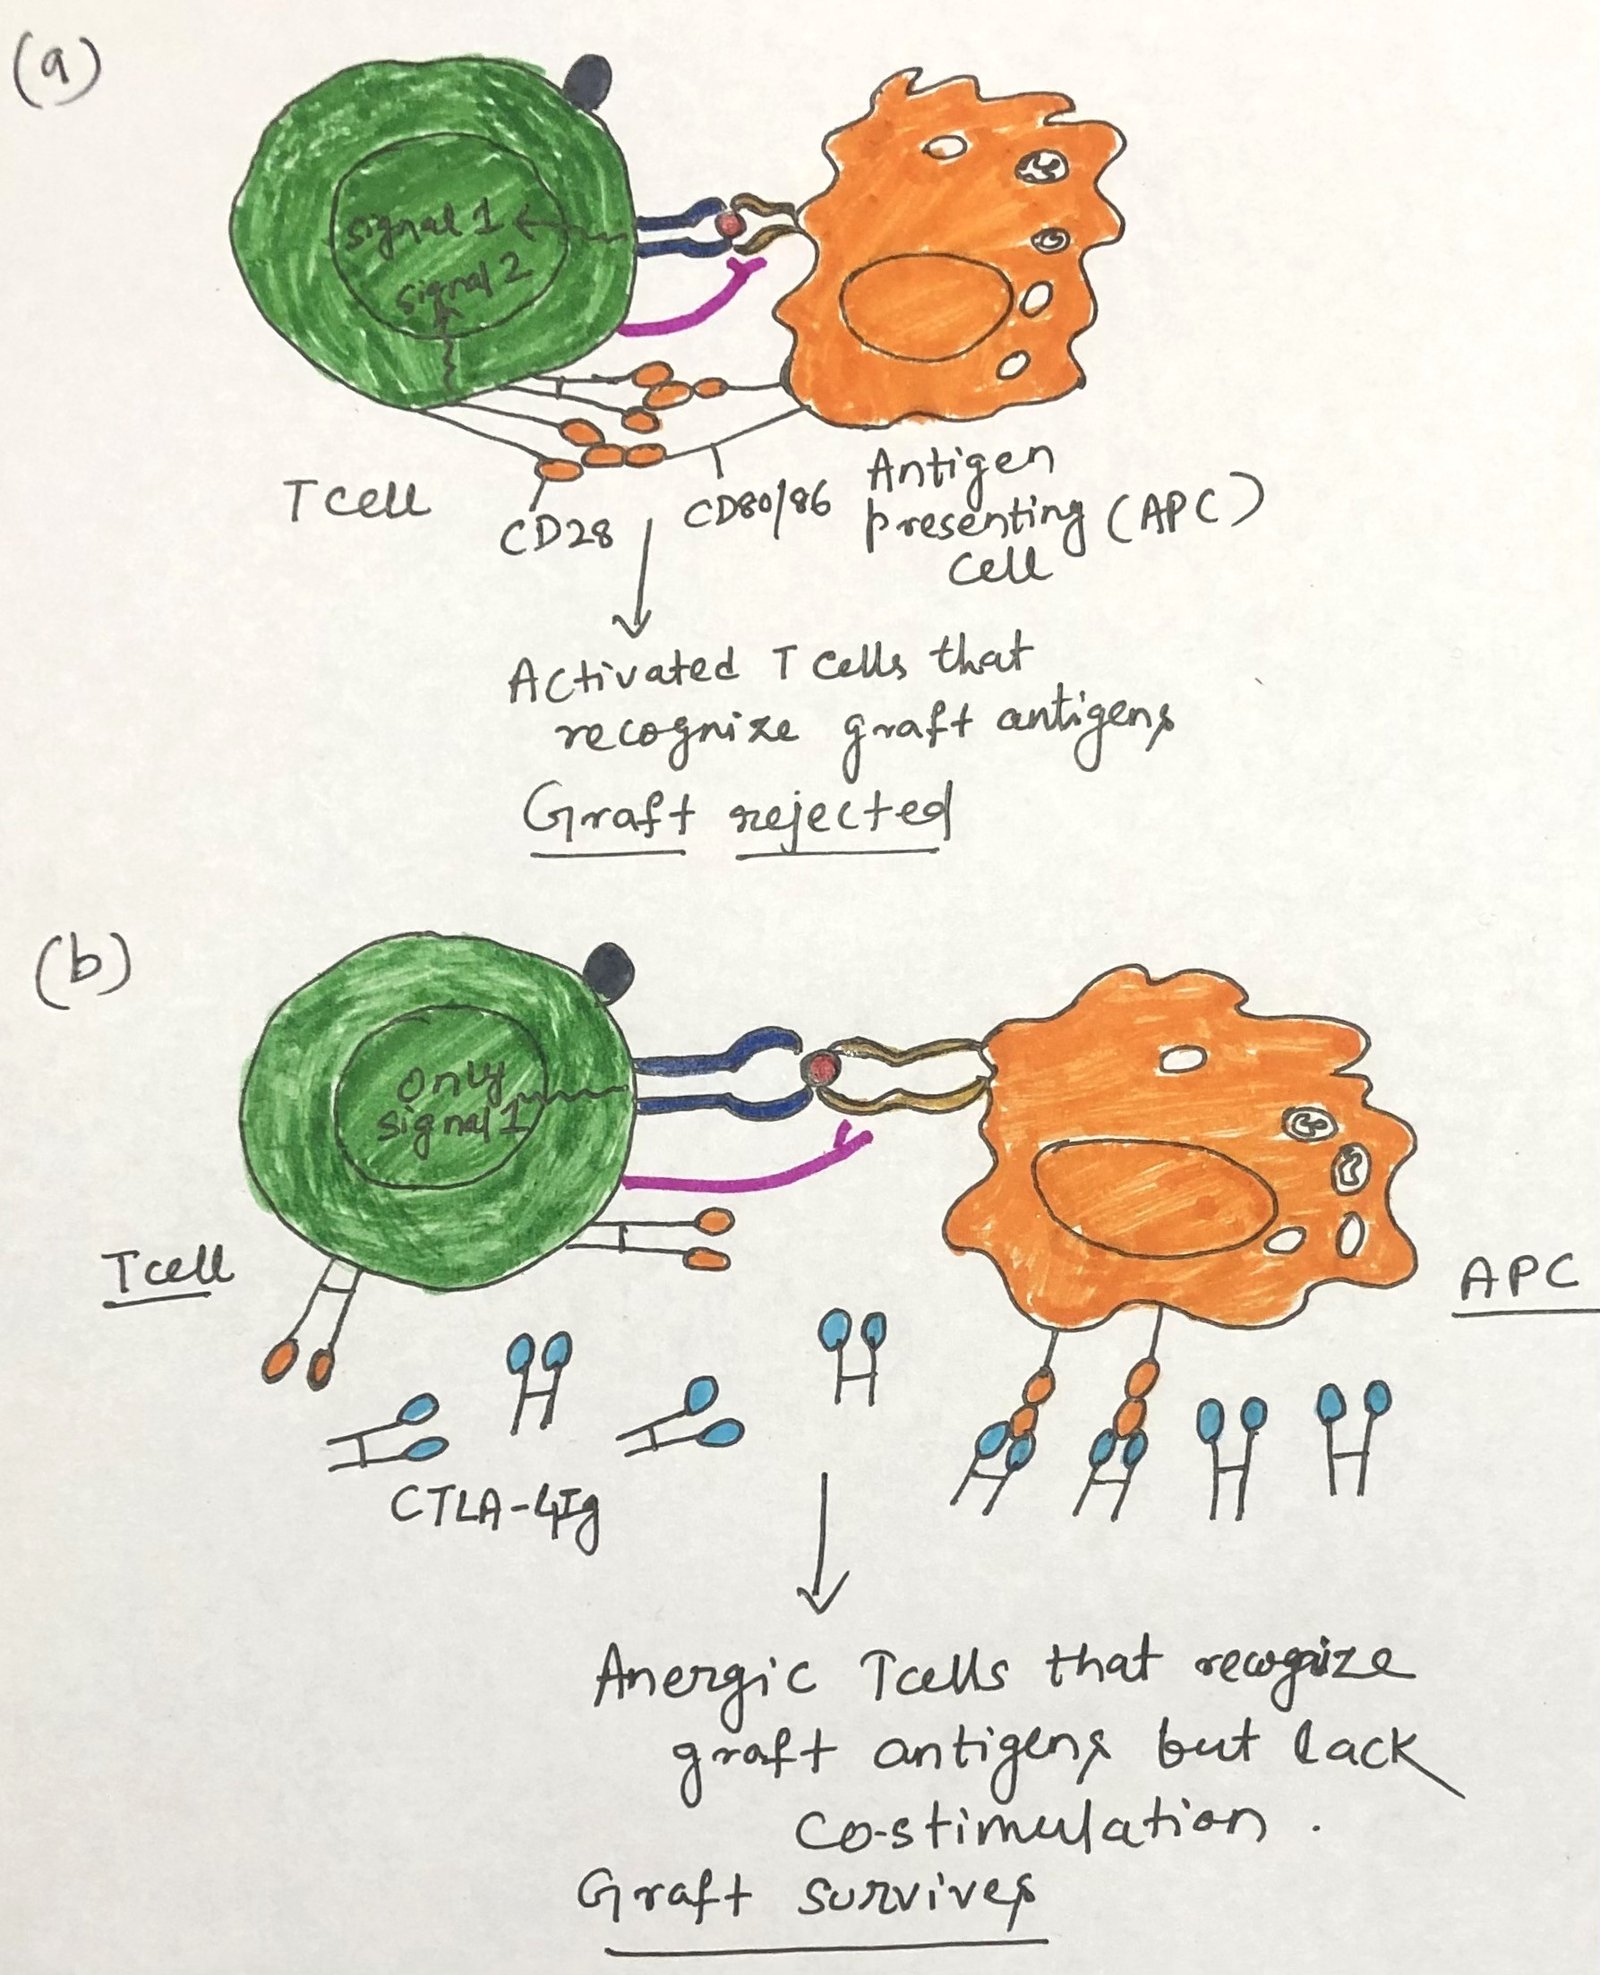 (a)
signal 1
signal 2
T cell
CD28
CD80/86
Antigen
presenting (APC)
cell
Activated T cells that
recognize graft antigens
Graft rejected
(b)
Only
signal 1
Tcell
APC
CTLA-4Ig
Anergic Tcells that recognize
graft antigens but lack
co-stimulation.
Graft survives